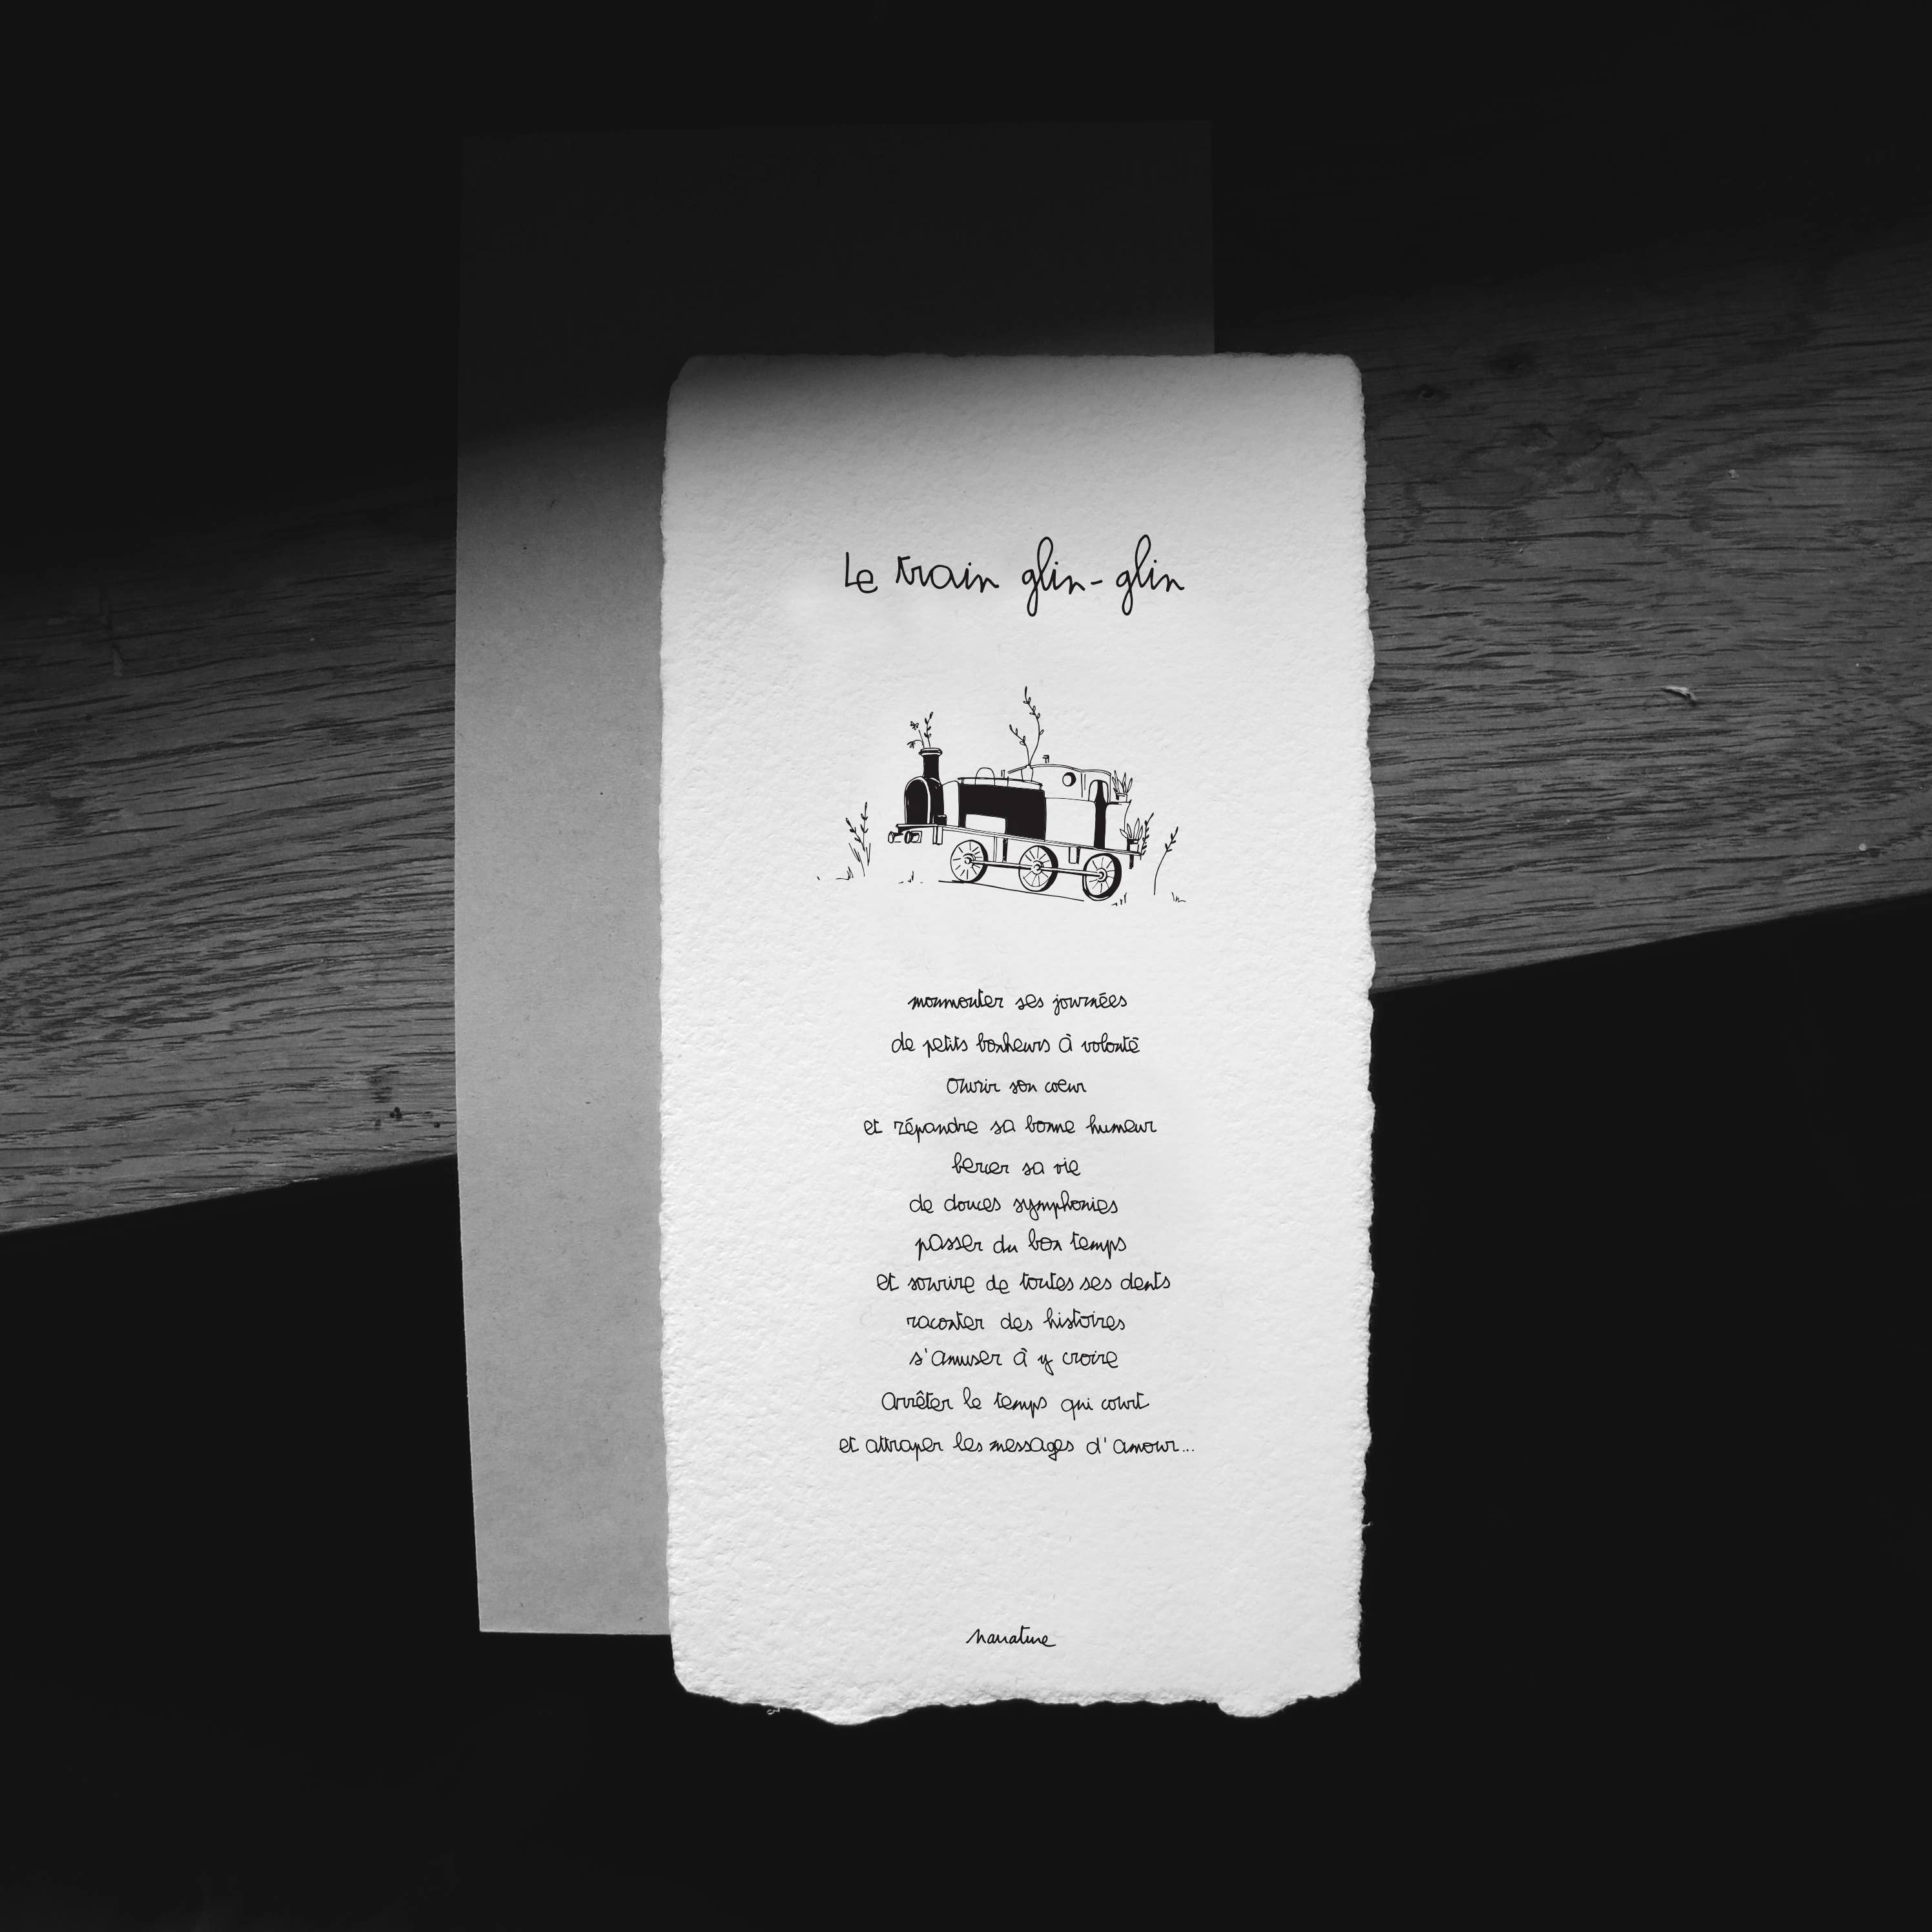 Le train glin-glin
moumouter ses journées
de petits bonheurs à volonté
Ouvrir son coeur
et répandre sa bonne humeur
bercer sa vie
de douces symphonies
passer du bon temps
et sourire de toutes ses dents
raconter des histoires
s'amuser à y croire
Arrêter le temps qui court
et attraper les messages d'amour...